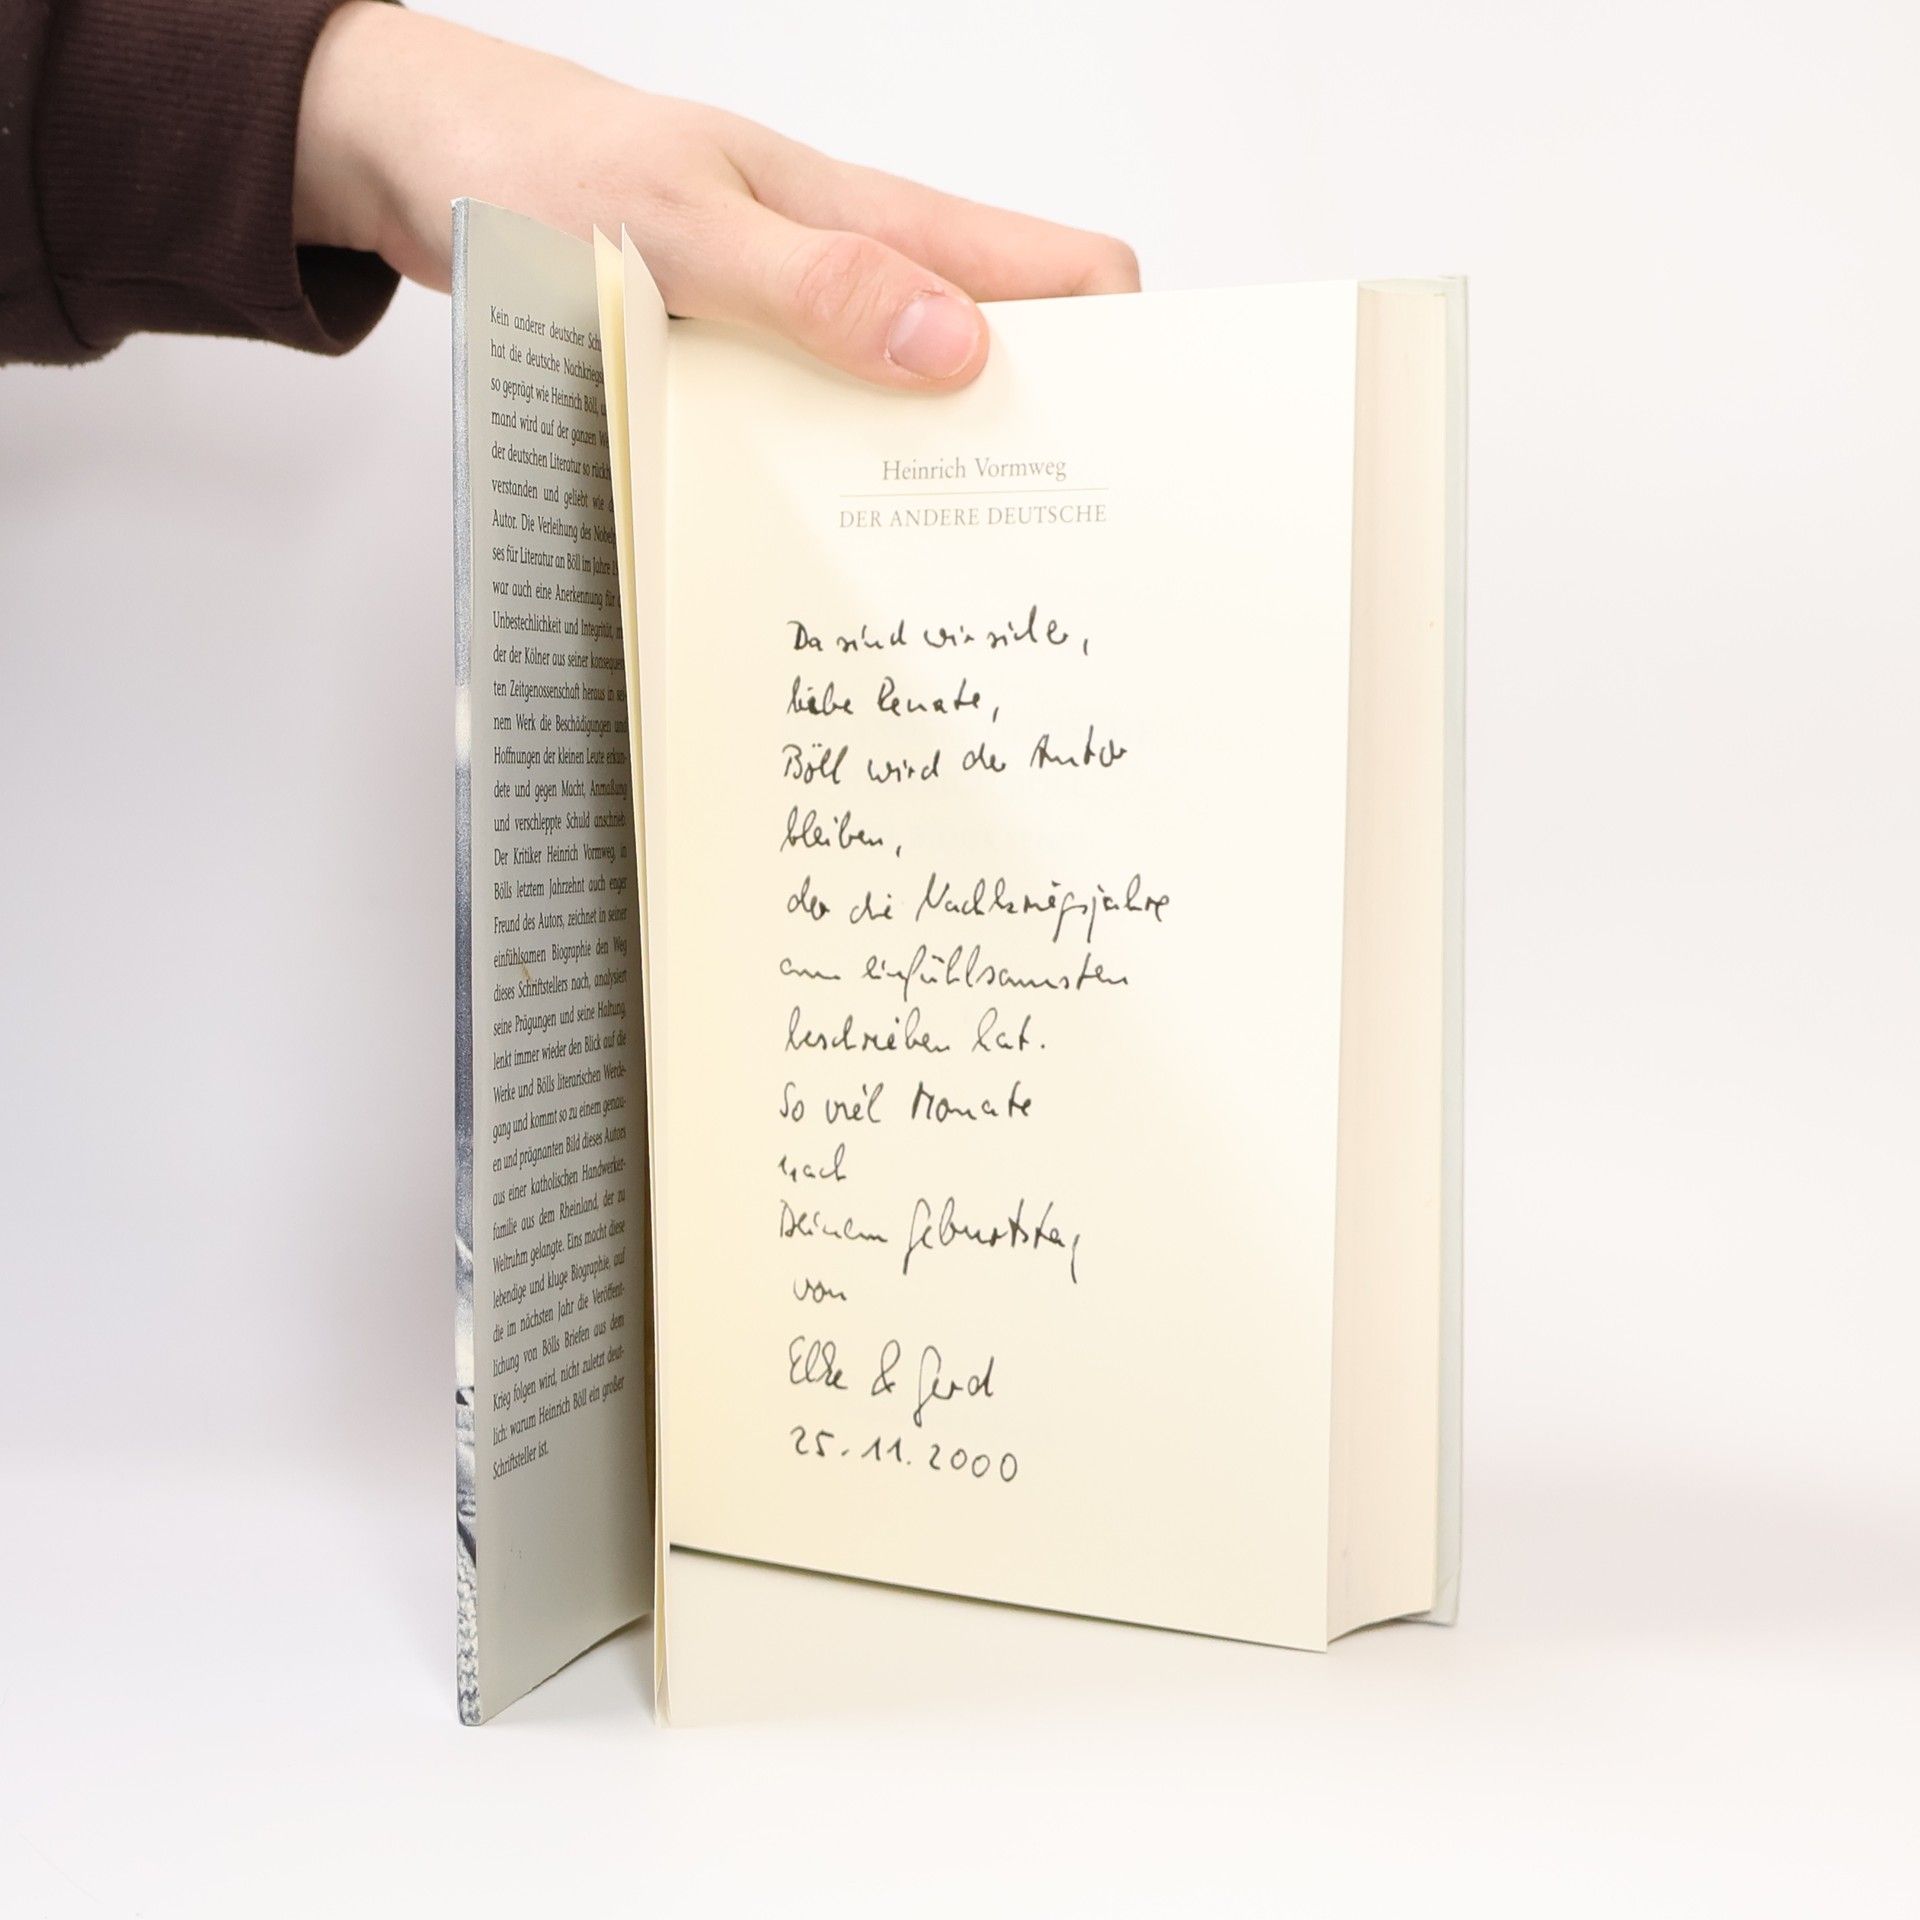 Kein anderer deutscher
hat die deutsche
so geprägt wie Heinrich Böll,
mand wird auf der ganzen
der deutschen Literatur so
verstanden und geliebt wie
Autor. Die Verleihung des
ses für Literatur an Böll im Jahre
war auch eine Anerkennung für
Unbestechlichkeit und Integrität,
der der Kölner aus seiner konsequen-
ten Zeitgenossenschaft heraus in sei-
nem Werk die Beschädigungen und
Hoffnungen der kleinen Leute erkun-
dete und gegen Macht, Anmaßung
und verschleppte Schuld anschrieb.
Der Kritiker Heinrich Vormweg, in
Bölls letztem Jahrzehnt auch enger
Freund des Autors, zeichnet in seiner
einfühlsamen Biographie den Weg
dieses Schriftstellers nach, analysiert
seine Prägungen und seine Haltung,
lenkt immer wieder den Blick auf die
Werke und Bölls literarischen Werde-
gang und kommt so zu einem genau-
en und prägnanten Bild dieses Autors
aus einer katholischen Handwerker-
familie aus dem Rheinland, der zu
Weltruhm gelangte. Eins macht diese
lebendige und kluge Biographie, auf
die im nächsten Jahr die Veröffent-
lichung von Bölls Briefen aus dem
Krieg folgen wird, nicht zuletzt deut-
lich: warum Heinrich Böll ein großer
Schriftsteller ist.
Heinrich Vormweg
DER ANDERE DEUTSCHE
Da sind wir sicher,
liebe Renate,
Böll wird der Autor
bleiben,
der die Nachkriegsjahre
am einfühlsamsten
beschrieben hat.
So viel Monate
nach
Deinem Geburtstag
von
Elke & Gerd
25.11.2000